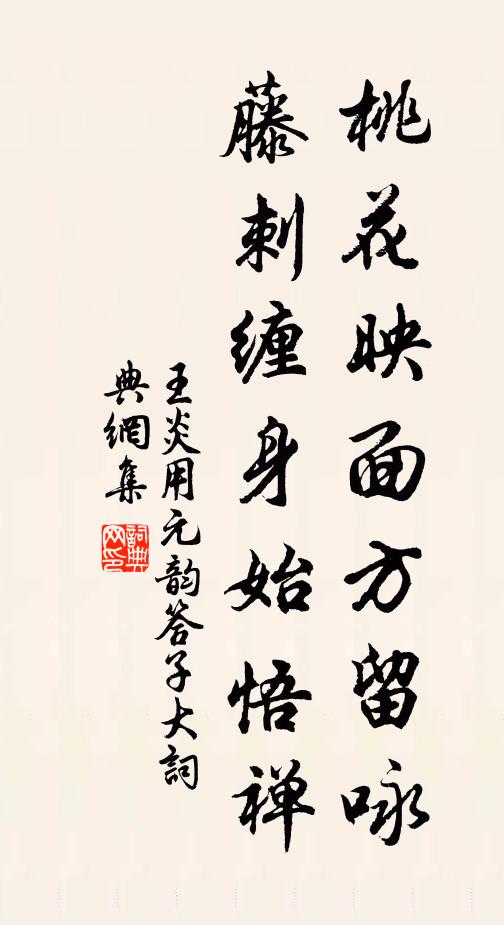 桃花映面方留咏
藤刺缠身始悟禅
王炎用元韵答子大詞
典網集
詞典网印